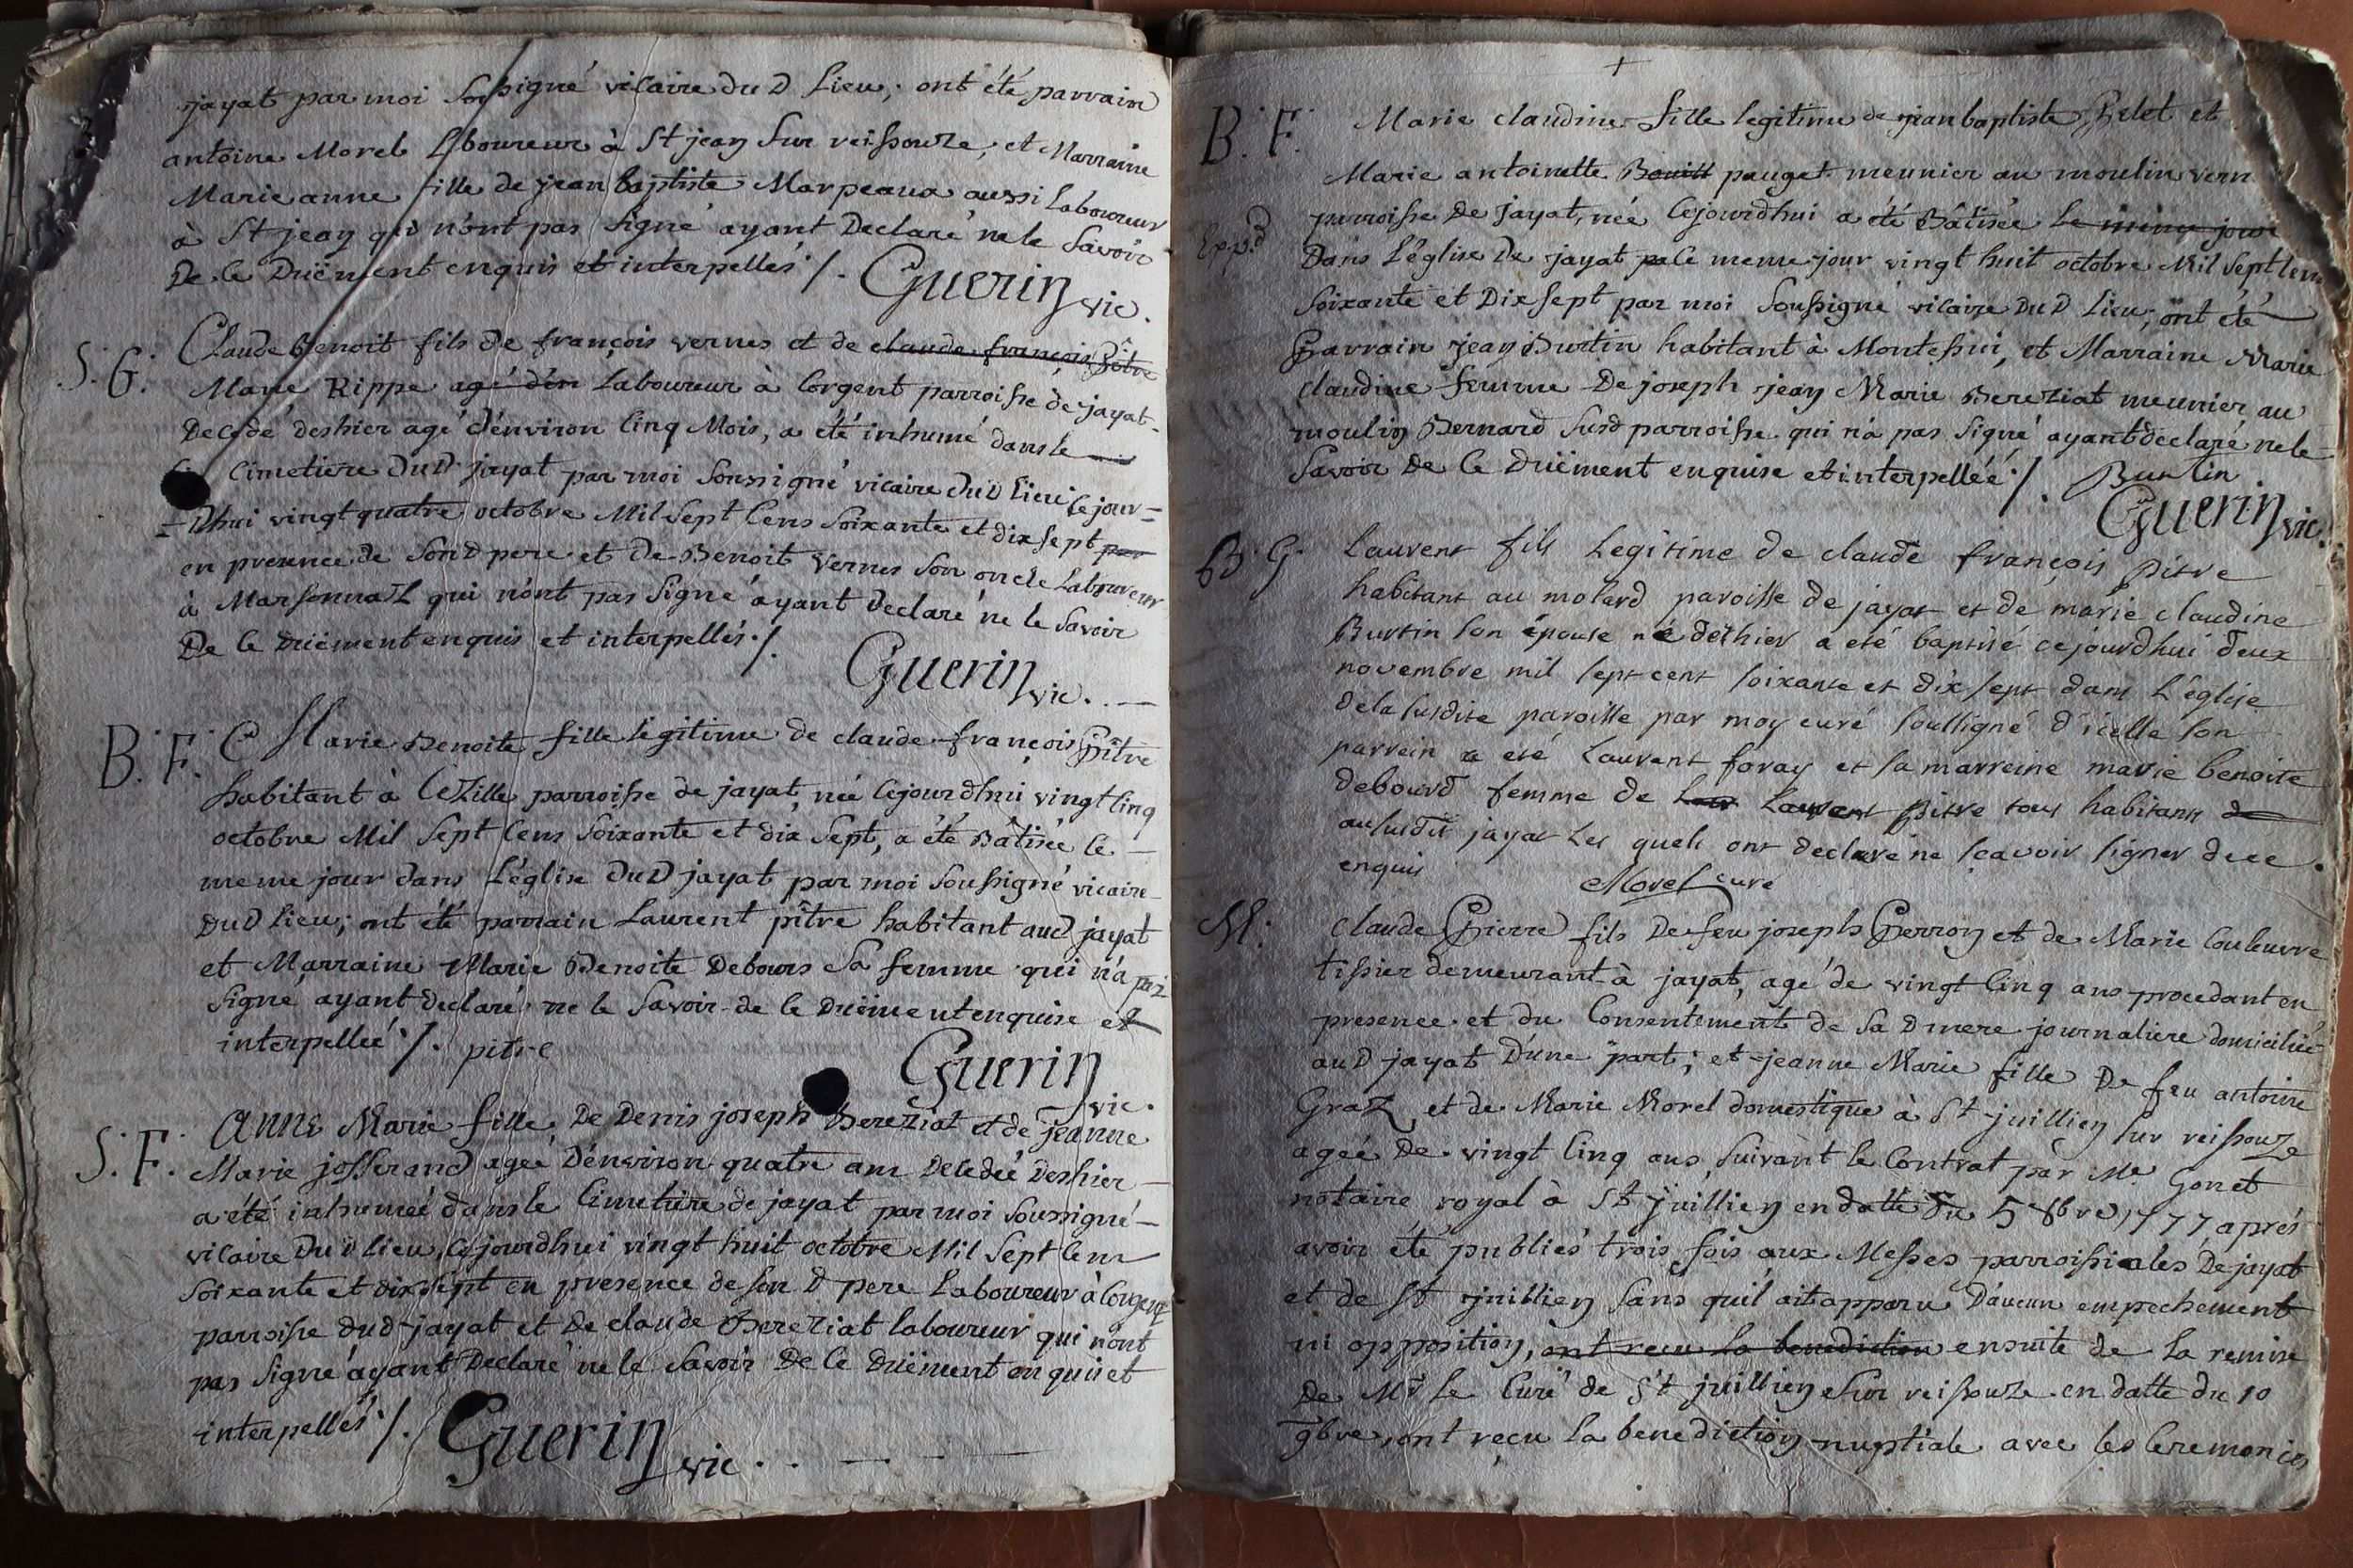 jayat par moi soussigné vicaire du D lieu; ont été parrain
antoine Morel Laboureur à St jean sur reissouze, et Marraine
Marie anne fille de jean baptiste Marpeaux aussi Laboureur
à St jean qui n'ont pas signé ayant Declaré ne le savoir
De ce Duëment enquis et interpellés ·/. Guerin vic.
S. G. Claude Benoit fils de françois vernes et de claude françois Pître
Marie Rippe agé d'en Laboureur à Corgent parroisse de jayat
Decedé deshier agé d'environ cinq Mois, a été inhumé dans le
cimetiere Du D jayat par moi soussigné vicaire du D lieu cejour=
=Dhui vingt quatre octobre Mil sept cens soixante et dix sept par
en presence de son D pere et de Benoit vernes son oncle Laboureur
à Marsonnaz qui n'ont pas signé ayant Declaré ne le savoir
De ce Duëment enquis et interpellés ·/.
Guerin vic.
B. F. Marie Benoite fille legitime de claude françois Pître
habitant à Cezille parroisse de jayat, née cejourdhui vingt cinq
octobre Mil sept cens soixante et dix sept, a été Bâtisée le
meme jour dans L'église Du D jayat par moi soussigné vicaire
Du D lieu; ont été parrain Laurent pître habitant aud jayat
et Marraine Marie Benoite Debours sa femme qui n'a pas
signé ayant declaré ne le savoir de ce Duëment enquise et
interpellée ·/. pitre Guerin vic.
S. F. Anne Marie fille De Denis joseph Bereziat et de jeanne
Marie josserand agée D'environ quatre ans Decedée Deshier
a été inhumée dans le cimetiere de jayat par moi soussigné
vicaire Du D lieu cejourdhui vingt huit octobre Mil sept cens
soixante et dix sept en presence de son D pere Laboureur à Corgent
parroisse dud jayat et De claude Bereziat laboureur qui n'ont
pas signé ayant Declaré ne le savoir De ce Duëment enquis et
interpellés ·/. Guerin vic.
B. F. Marie claudine fille legitime de jean baptiste Pelet et
Marie antoinette Bouill pauget meunier au moulin vern
parroisse De jayat, née cejourdhui a été Bâtisée le meme jour
Exp.d Dans L'église De jayat pa le meme jour vingt huit octobre Mil sept cens
soixante et Dix sept par moi soussigné vicaire Du D lieu; ont été
Parrain jean Burtin habitant à Montessui, et Marraine Marie
claudine femme De joseph jean Marie Bereziat meunier au
moulin Bernard susd parroisse qui n'a pas signé ayant declaré ne le
savoir De ce Duëment enquise et interpellée ·/. Burtin
Guerin vic.
B. G. Laurent fils Legitime de claude françois pitre
habitant au molard paroisse de jayat et de marie claudine
Burtin son épouse né dethier a eté baptisé cejourdhui deux
novembre mil sept cent soixante et dix sept dans L'église
dela susdite paroisse par moy curé soussigné d'icelle son
parrein a eté Laurent foray et sa marreine marie benoite
debourd femme de Laur Laurent pitre tous habitants de
aususdit jayat Les quels ont declaré ne sçavoir signer dece
enquis Morel curé
M. Claude Pierre fils De feu joseph Perron et de Marie Couleuvre
tissier demeurant à jayat, agé de vingt cinq ans procedant en
presence et du Consentement de sa D mere journaliere domiciliée
au D jayat D'une part; et jeanne Marie fille De feu antoine
Graz et de Marie Morel domestique à St juillien sur reissouze
agée De vingt cinq ans suivant le Contrat par Me Gonet
notaire royal à St juillien en datte Du 5 8bre 1777 aprés
avoir été publiés trois fois aux Messes parroissiales De jayat
et de St juillien sans quil ait apparu D'aucun empechement
ni opposition, ont recu la benediction ensuite de la remise
De Mr le Curé de St juillien sur reissouze en datte du 10
9bre, ont reçu la benediction nuptiale avec les Ceremonies